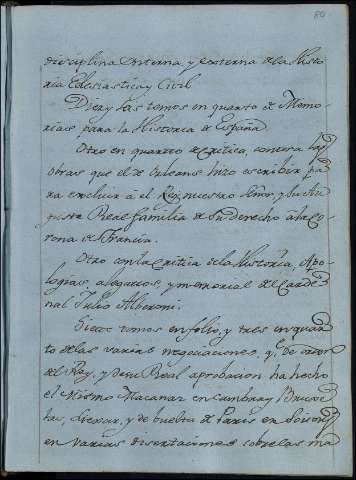 80
disciplina interna, y externa de la Histo
ria Eclesiastica y Civil
Diez y las tomos en quarto de Memo
rias para la Historia de España.
Otro en quarto de Critica, contra las
obras que el de Orleans hizo escribir pa
ra excluir à el Rey nuestro Señor, y su Au
gusta Real familia de su derecho à la Co
rona de Francia.
Otro con la Critica de la Historia, Apo
logias, alegatos, y memorial del Carde
nal Julio Alberoni.
Siete tomos en folio, y tres en quar
to de las varias negociaciones, q.e de orden
del Rey, y de su Real aprobacion ha hecho
el mismo Macanaz en Cambray Bruse
las, Liexa, y de buelta de Paris en Soison
en varias disertaciones sobre las ma